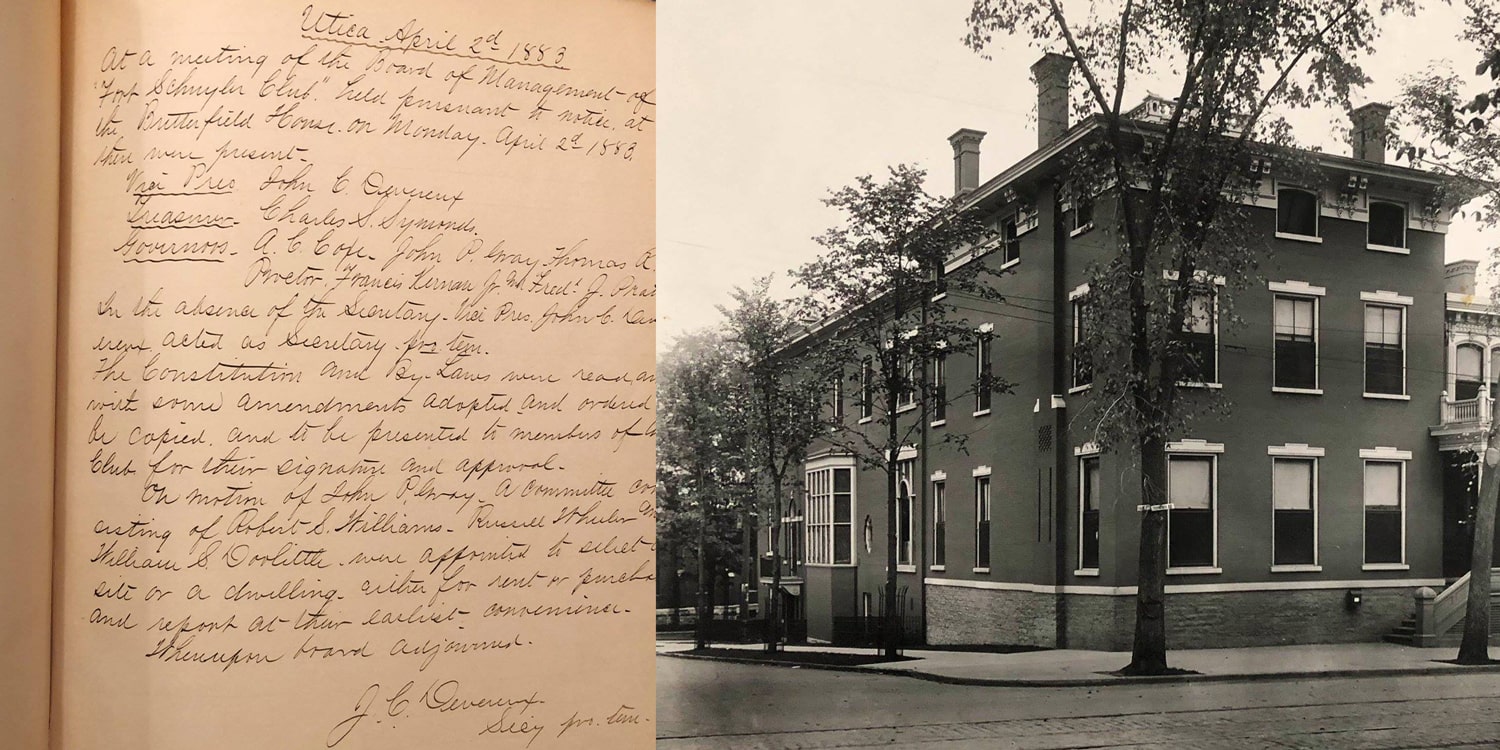 Utica April 2d 1883
At a meeting of the Board of Management of
"Fort Schuyler Club." held pursuant to notice, at
the Butterfield House. on Monday. April 2d 1883,
there were present-
Vice Pres John C. Devereux
Treasurer- Charles S. Symonds.
Governors- A. C. Coxe- John P. Gray- Thomas R.
Proctor. Francis Kernan Jr. Fredk. J.
In the absence of the Secretary- Vice Pres. John C. Dev
ereux acted as Secretary pro tem.
The Constitution and By-Laws were read, an
with some amendments adopted and ordered
be copied, and to be presented to members of
Club for their signature and approval-
On motion of John P. Gray- A committee con
sisting of Robert S. Williams- Russell Wheeler
William S. Doolittle- were appointed to select
site or a dwelling- either for rent or purcha
and report at their earliest- convenience-
Whereupon board adjourned-
J. C. Devereux-
Secy pro. tem-